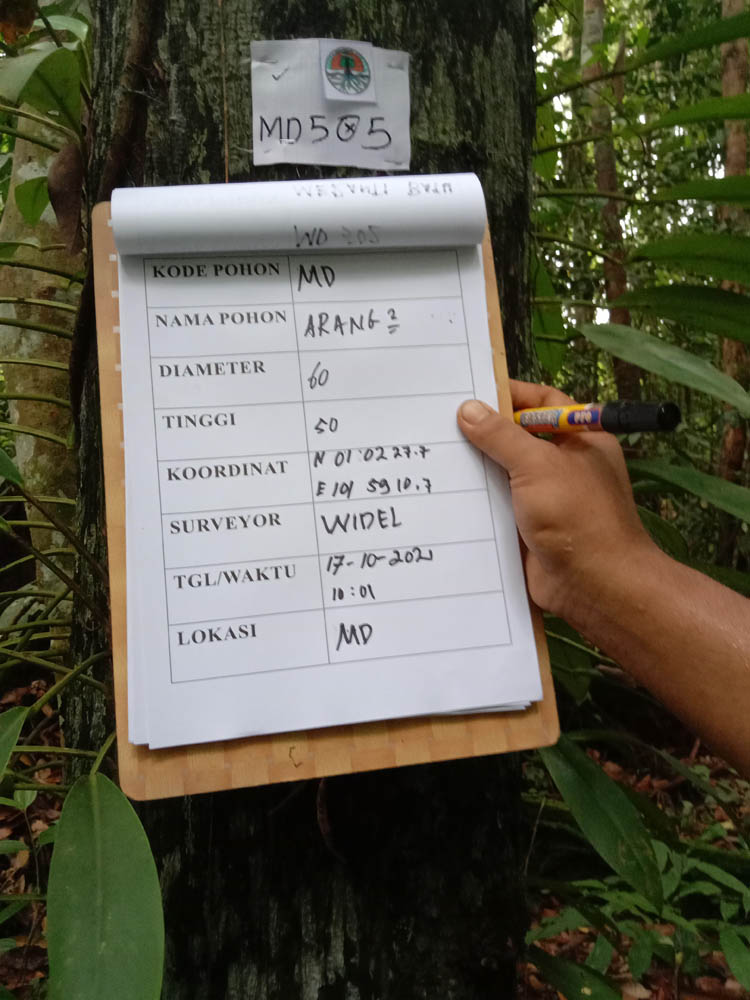 MD505
KODE POHON MD
NAMA POHON ARANG 2
DIAMETER 60
TINGGI 50
KOORDINAT N 01:02 27.7
E 101 59 10.7
SURVEYOR WIDEL
TGL/WAKTU 17-10-2021
10:01
LOKASI MD